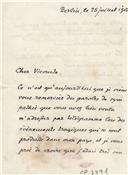 Berlin, le 26 juillet 190
Cher Vicomte,
Ce n'est qu'aujourd'hui que je viens
vous remercier des paroles de sym-
pathie que vous avez bien voulu
m'adresser par télégramme lors des
événements tragiques qui se sont
produits dans mon pays, et je vous
prie de croire que j'étais très